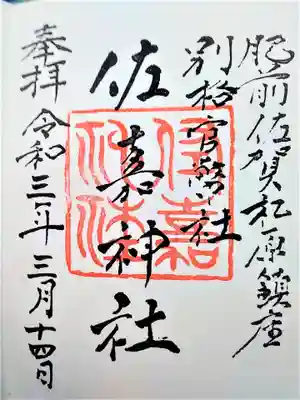 肥前佐賀松原鎮座
別格官幣社
佐嘉神社
奉拝 令和三年三月十四日